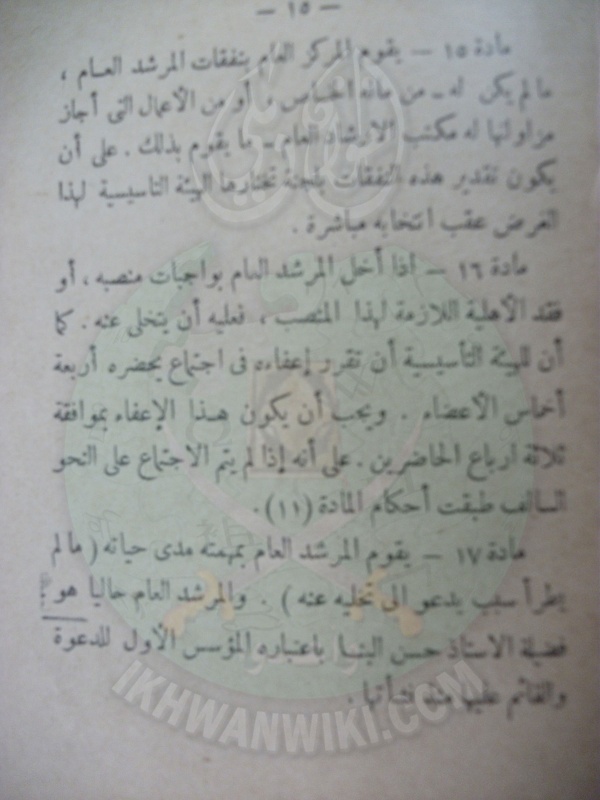 — ١٥ —
مادة ١٥ — يقوم المركز العام بنفقات المرشد العام ،
مالم يكن له ـ من ماله الخاص ، أو من الأعمال التى أجاز
مزاولتها له مكتب الارشاد العام ـ ما يقوم بذلك . على أن
يكون تقدير هذه النفقات بلجنة تختارها الهيئة التأسيسية لهذا
الغرض عقب انتخابه مباشرة .
مادة ١٦ — اذا أخل المرشد العام بواجبات منصبه ، أو
فقد الأهلية اللازمة لهذا المنصب ، فعليه أن يتخلى عنه . كما
أن للهيئة التأسيسية أن تقرر إعفاءه فى اجتماع يحضره أربعة
أخماس الأعضاء . ويجب أن يكون هذا الإعفاء بموافقة
ثلاثة ارباع الحاضرين . على أنه إذا لم يتم الاجتماع على النحو
السالف طبقت أحكام المادة (١١) .
مادة ١٧ — يقوم المرشد العام بمهمته مدى حياته ( مالم
يطرأ سبب يدعو الى تخليه عنه ) . والمرشد العام حاليا هو
فضيلة الاستاذ حسن البنا باعتباره المؤسس الأول للدعوة
والقائم عليها منذ نشأتها .
IKHWANWIKI.COM